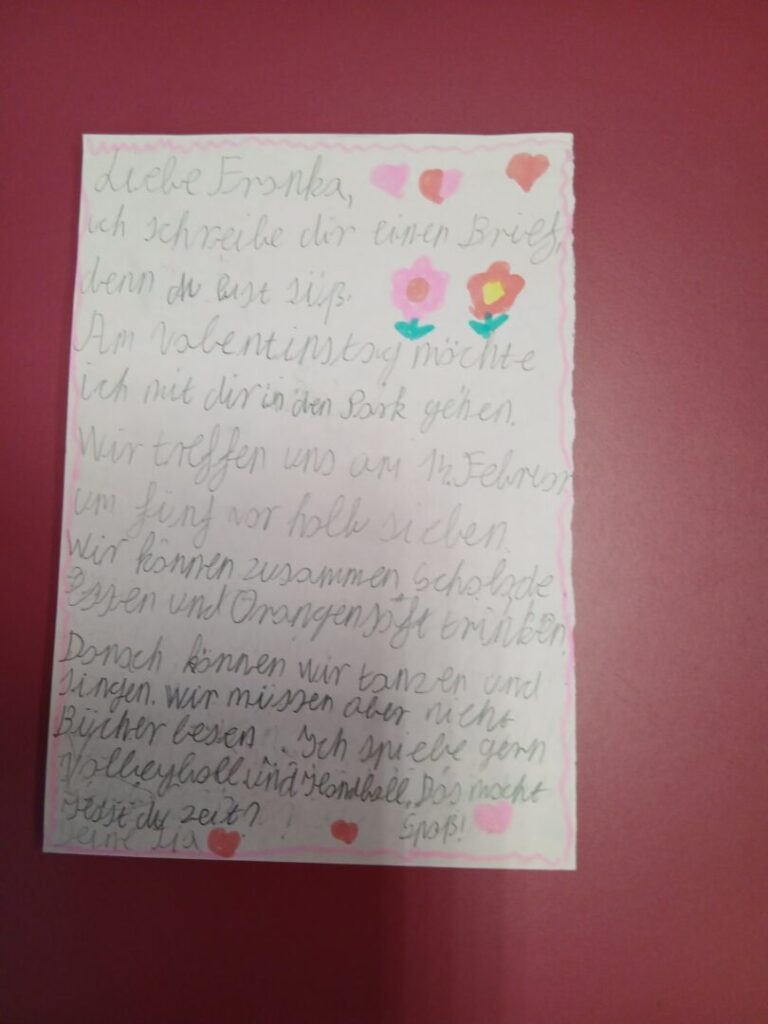 Liebe Franka,
ich schreibe dir einen Brief,
denn du bist süß.
Am Valentinstag möchte
ich mit dir in den Park gehen.
Wir treffen uns am 14. Februar
um fünf vor halb sieben.
Wir können zusammen Scholade
Essen und Orangensaft trinken.
Danach können wir tanzen und
singen. Wir müssen aber nicht
Bücher lesen. Ich spiele gern
Volleyball und Handball. Das macht
Spaß!
Hast du zeit?
Deine Lia